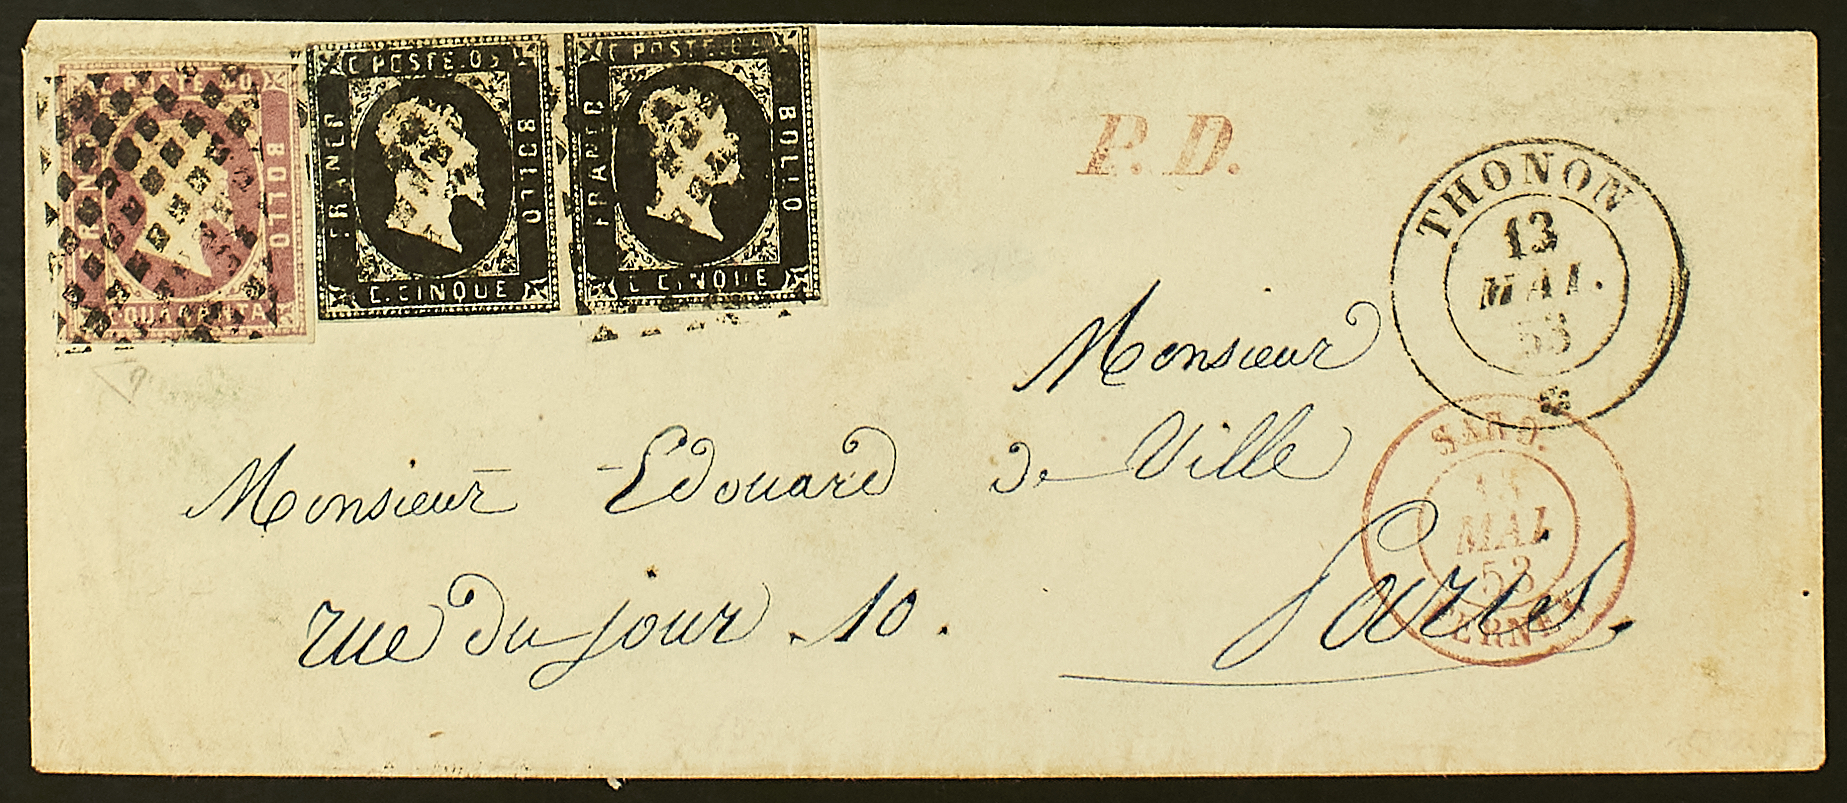 C. POSTE. 40
BOLLO
C. QUARANTA
C. POSTE. 05
FRANCO
BOLLO
C. CINQUE
C. POSTE. 05
FRANCO
BOLLO
C. CINQUE
P. D.
THONON
13
MAI.
53
Monsieur
Monsieur Edouard de Ville
rue du jour . 10 .
Paris.
SARD.
MAI
53
FERNEY